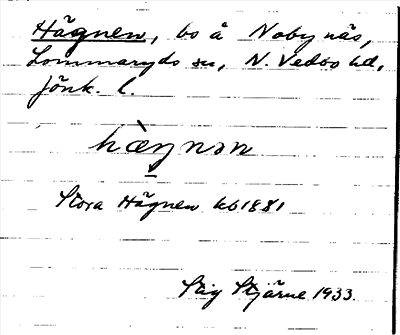 Hägnen, bo å Nobynäs,
Lommaryds sn, N. Vedbo hd,
Jönk. l.
hæ̀ŋnən
Stora Hägnen kb 1881
Stig Stjärne 1933.